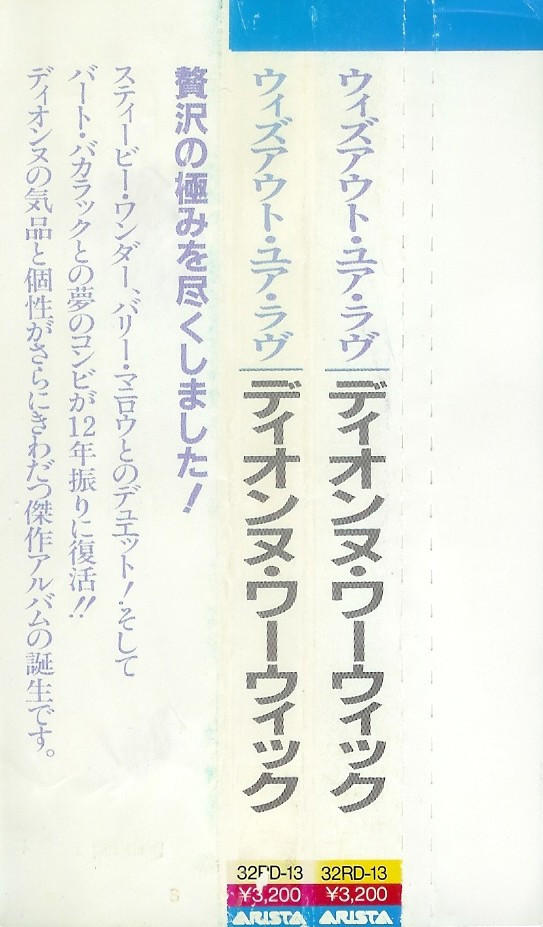 ウィズアウト・ユア・ラヴ
ディオンヌ・ワーウィック
32RD-13
¥3,200
ARISTA
ウィズアウト・ユア・ラヴ
ディオンヌ・ワーウィック
32RD-13
¥3,200
ARISTA
贅沢の極みを尽くしました!
スティービー・ワンダー、バリー・マニロウとのデュエット!そして
バート・バカラックとの夢のコンビが12年振りに復活!!
ディオンヌの気品と個性がさらにきわだつ傑作アルバムの誕生です。